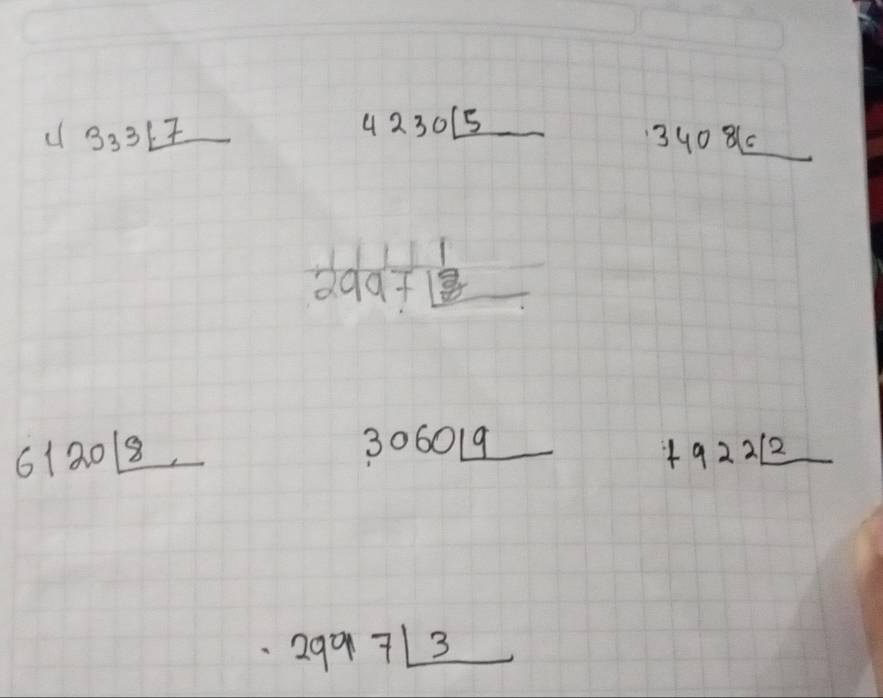 4333 7
4230 5
3408 6
2997
6120 8
3060 9
7922 2
2997 3